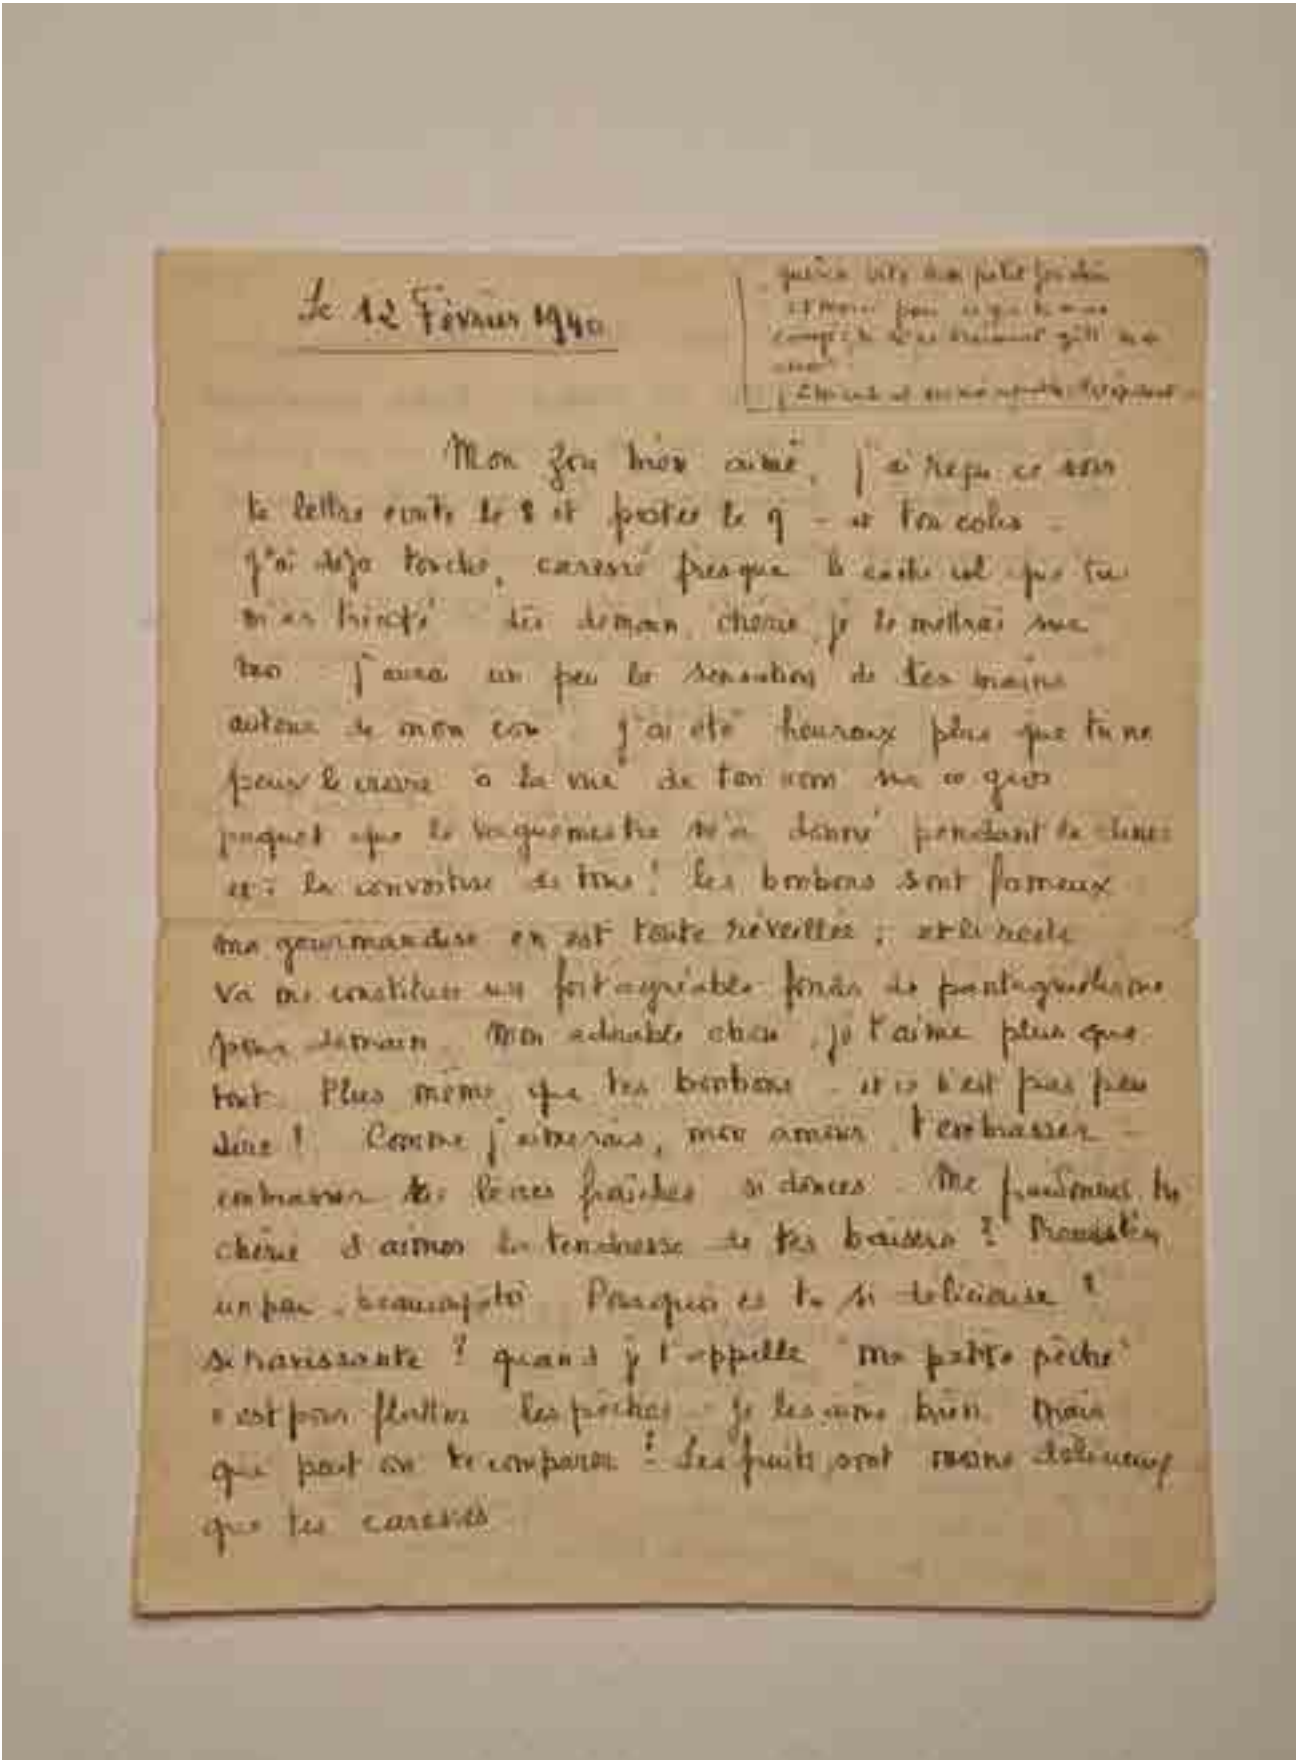 Le 12 Février 1940
guéris vite mon petit fou chéri
et merci pour ce que tu
vraiment gâté mon
Mon fou bien aimé, j'ai reçu ce soir
ta lettre écrite le 8 et postée le 9 - et ton colis -
J'ai déjà touché, caressé presque le cache col que tu
m'as tricoté dès demain, chérie, je le mettrai sur
moi J'aurai un peu la sensation de tes mains
autour de mon cou. J'ai été heureux plus que tu ne
peux le croire à la vue de ton nom sur ce gros
paquet que le vaguemestre m'a donné pendant le dîner
et à la convoitise de tous ! Les bonbons sont fameux
ma gourmandise en est toute réveillée ; et le reste
va me constituer un fort agréable fonds de pantagruélisme
pour demain. Mon adorable chou, je t'aime plus que
tout. Plus même que tes bonbons - et ce n'est pas peu
dire ! Comme j'aimerais, mon amour, t'embrasser -
embrasser tes lèvres fraîches si douces. Me pardonnes tu
chérie d'aimer la tendresse de tes baisers ?
un peu, beaucoup Pourquoi es tu si délicieuse ?
si ravissante ? quand je t'appelle "ma petite pêche"
c'est pour flatter les pêches - Je les aime bien mais
que peut on te comparer ? Les fruits sont moins délicieux
que tes caresses